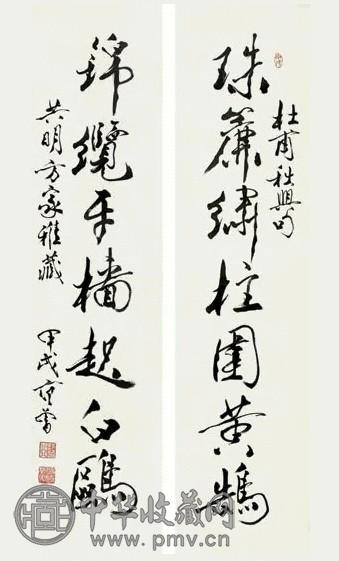 杜甫秋興句
珠簾繡柱圍黃鵠
錦纜牙檣起白鷗
共明方家雅藏
甲戌范曾
中华收藏网
www.pmv.cn